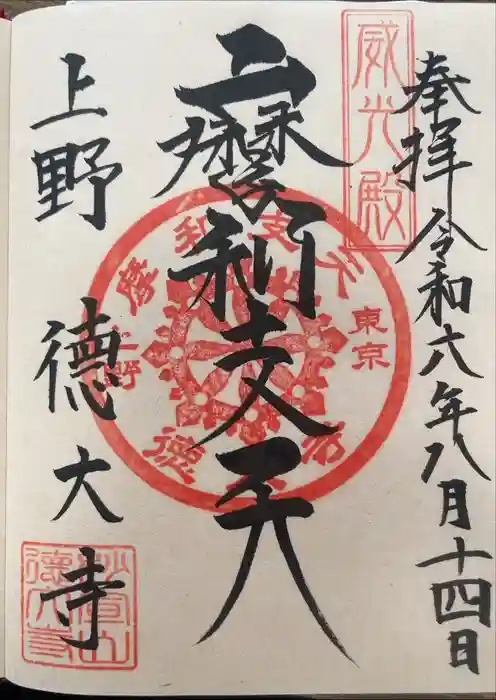 奉拝 令和六年八月十四日
威光殿
摩利支天
摩利支天
東京
上野
徳大寺
上野 徳大寺
妙宣山
徳大寺